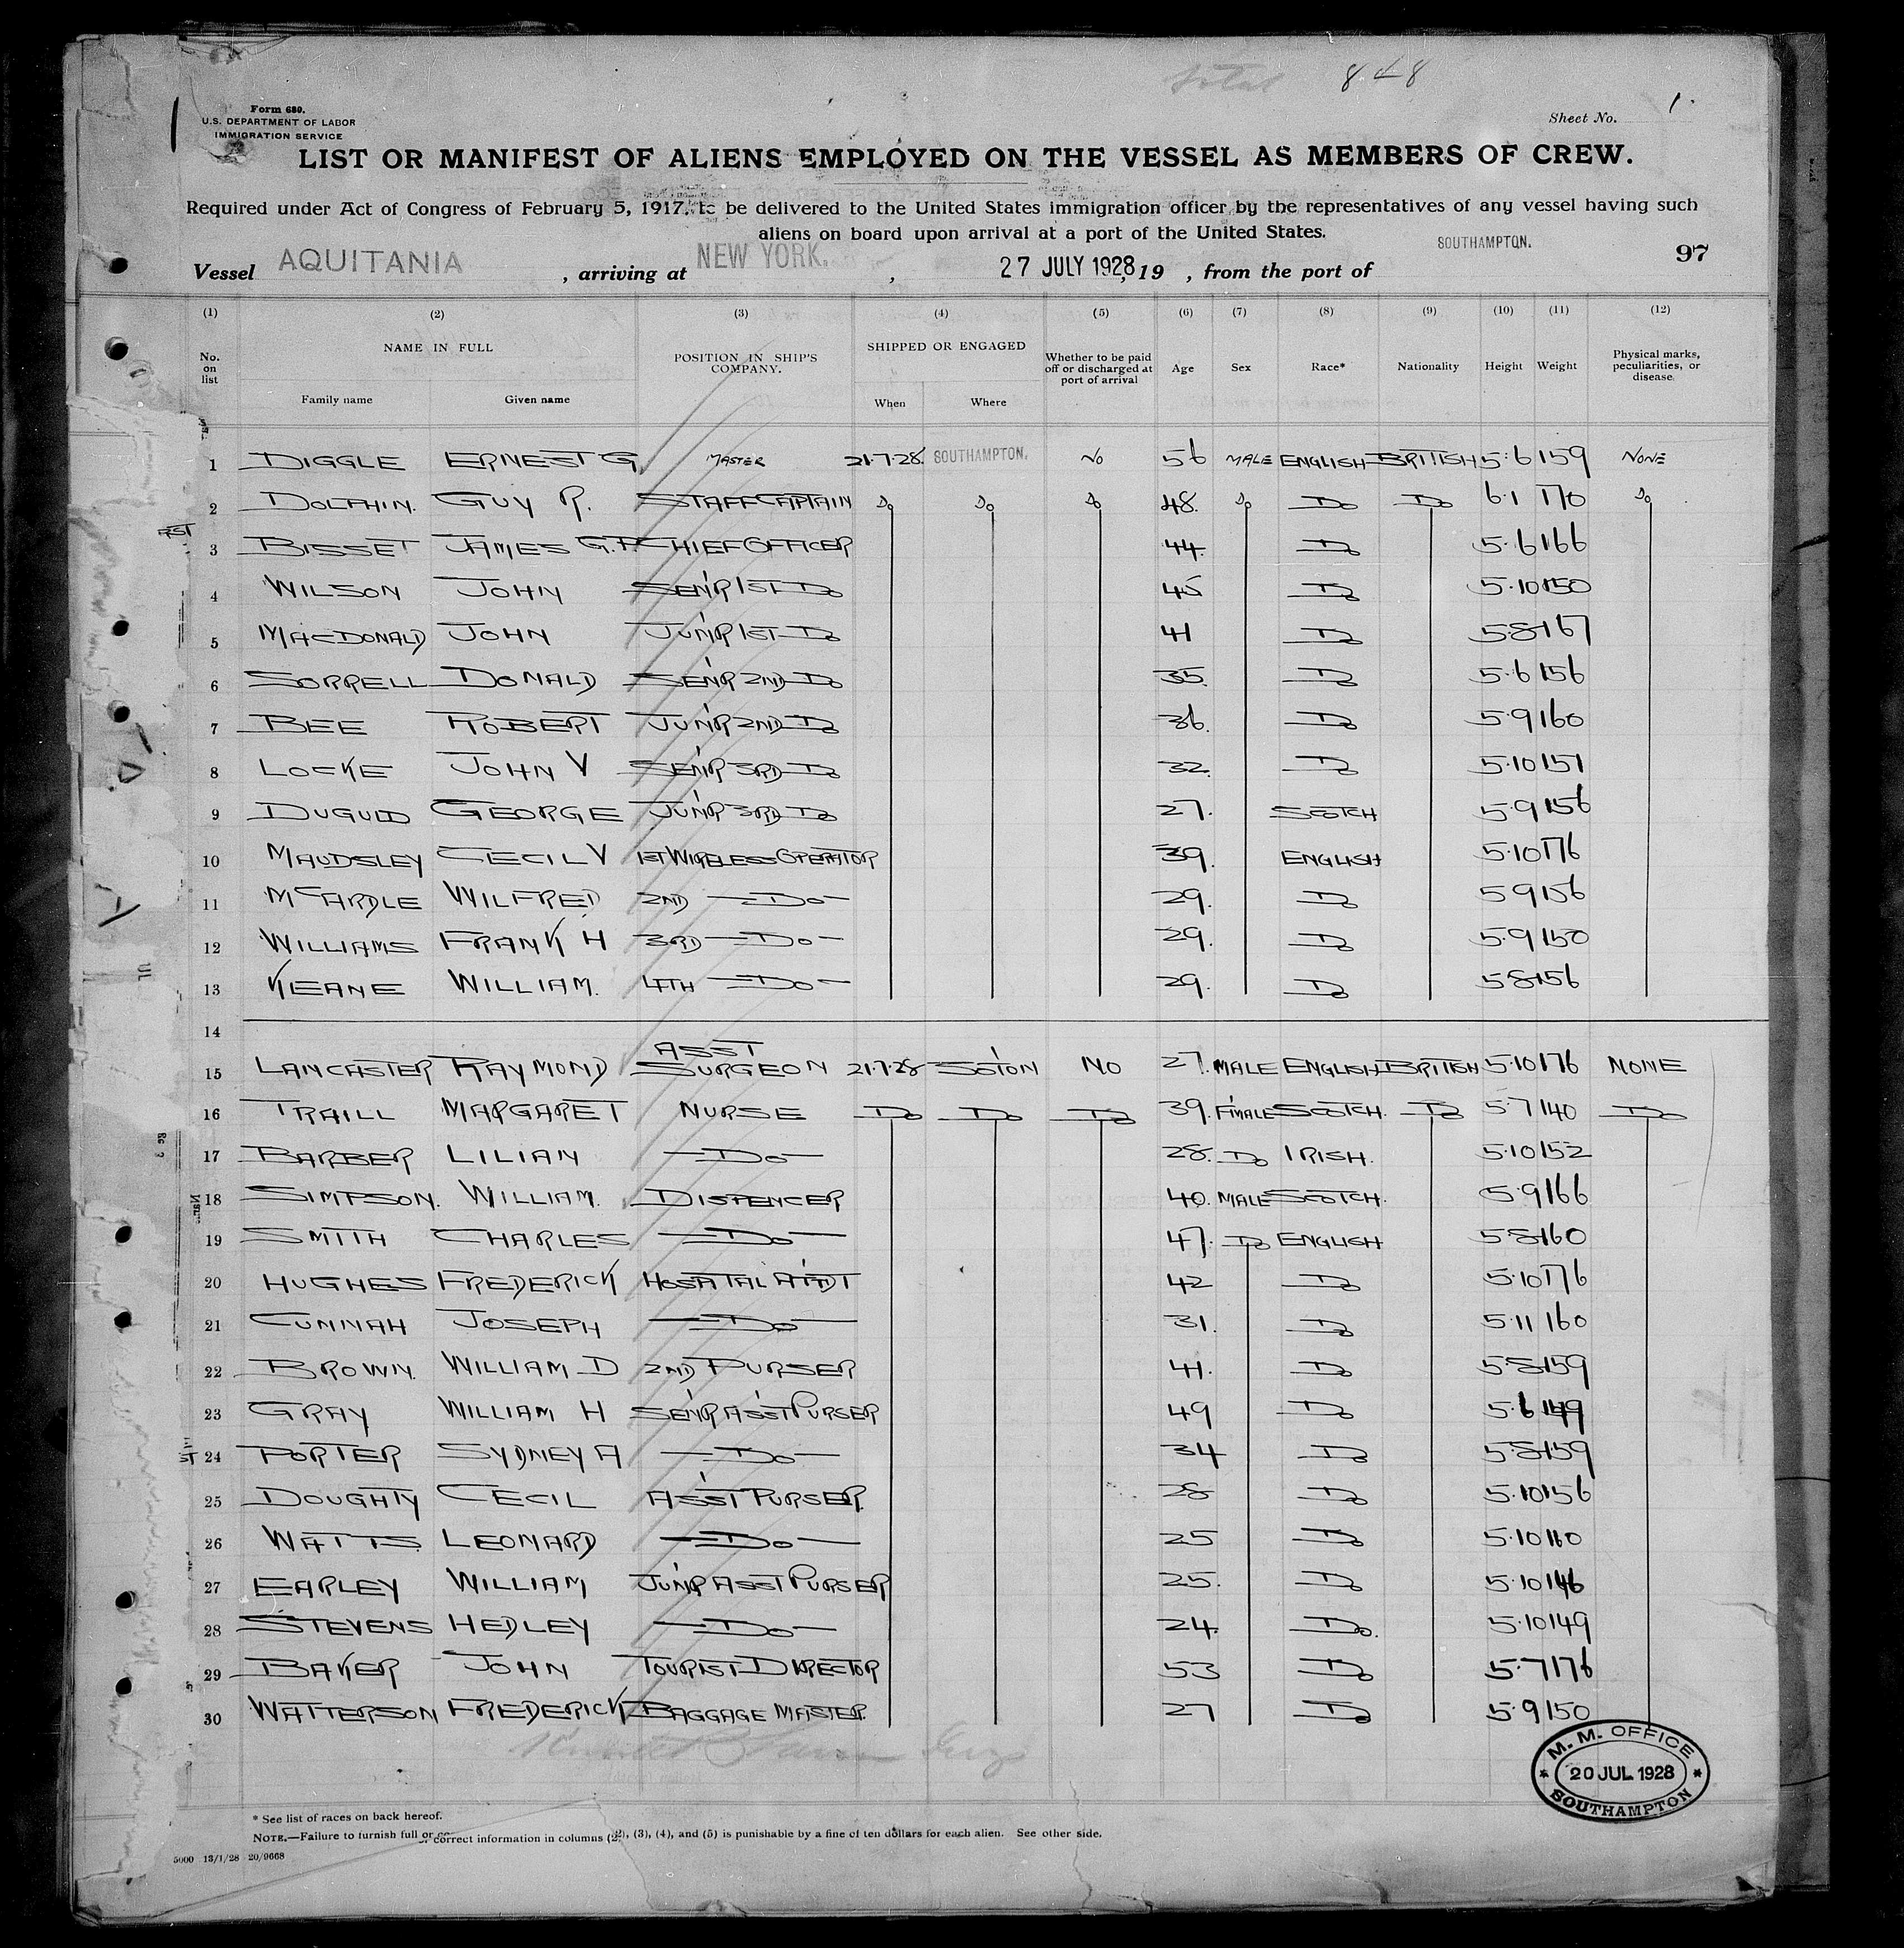 Total 848
Form 680.
U.S. DEPARTMENT OF LABOR
IMMIGRATION SERVICE
Sheet No. 1.
LIST OR MANIFEST OF ALIENS EMPLOYED ON THE VESSEL AS MEMBERS OF CREW.
Required under Act of Congress of February 5, 1917, to be delivered to the United States immigration officer by the representatives of any vessel having such
aliens on board upon arrival at a port of the United States.
Vessel AQUITANIA, arriving at NEW YORK., 27 JULY 1928, 19 , from the port of SOUTHAMPTON. 97
(1) (2) (3) (4) (5) (6) (7) (8) (9) (10) (11) (12)
No. on list NAME IN FULL POSITION IN SHIP'S COMPANY. SHIPPED OR ENGAGED Whether to be paid off or discharged at port of arrival Age Sex Race* Nationality Height Weight Physical marks, peculiarities, or disease.
Family name Given name When Where
1 DIGGLE ERNEST G. MASTER 21.7.28. SOUTHAMPTON. NO 56 MALE ENGLISH BRITISH 5.6 159 NONE
2 DOLPHIN. GUY R. STAFF CAPTAIN Do Do Do 48. Do Do Do 6.1 170 Do
3 BISSET JAMES G.P. CHIEF OFFICER 44 Do 5.6 166
4 WILSON JOHN SEN'R 1ST Do 45 Do 5.10 150
5 MACDONALD JOHN JUN'R 1ST Do 41 Do 5.8 167
6 SORRELL DONALD SEN'R 2ND Do 35. Do 5.6 156
7 BEE ROBERT JUN'R 2ND Do 36. Do 5.9 160
8 LOCKE JOHN V SEN'R 3RD Do 32. Do 5.10 151
9 DUGUID GEORGE JUN'R 3RD Do 27. SCOTCH 5.9 156
10 MAUDSLEY CECIL V 1ST WIRELESS OPERATOR 39. ENGLISH 5.10 176
11 McARDLE WILFRED 2ND Do 29. Do 5.9 156
12 WILLIAMS FRANK H 3RD Do 29. Do 5.9 150
13 KEANE WILLIAM. 4TH Do 29. Do 5.8 156
14
15 LANCASTER RAYMOND ASST SURGEON 21.7.28 SO'TON NO 27. MALE ENGLISH BRITISH 5.10 176 NONE
16 TRAILL MARGARET NURSE Do Do Do 39. F'MALE SCOTCH. Do 5.7 140 Do
17 BARBER LILIAN Do 28. Do IRISH. 5.10 152
18 SIMPSON. WILLIAM. DISPENCER 40. MALE SCOTCH. 5.9 166
19 SMITH CHARLES Do 47. Do ENGLISH 5.8 160
20 HUGHES FREDERICK HOSPITAL ATTDT 42 Do 5.10 176
21 CUNNAH JOSEPH Do 31. Do 5.11 160
22 BROWN. WILLIAM D 2ND PURSER 41. Do 5.8 159
23 GRAY WILLIAM H SEN'R ASS'T PURSER 49 Do 5.6 149
24 PORTER SYDNEY A Do 34 Do 5.8 159
25 DOUGHTY CECIL ASS'T PURSER. 28 Do 5.10 156
26 WATTS. LEONARD Do 25 Do 5.10 160
27 EARLEY WILLIAM JUN'R ASST PURSER 25. Do 5.10 146
28 STEVENS HEDLEY Do 24 Do. 5.10 149
29 BAKER JOHN TOURIST DIRECTOR 53 Do 5.7 176
30 WATTERSON FREDERICK BAGGAGE MASTER. 27 Do 5.9 150
M. M. OFFICE
20 JUL 1928
SOUTHAMPTON
* See list of races on back hereof.
NOTE.—Failure to furnish full or correct information in columns (2), (3), (4), and (5) is punishable by a fine of ten dollars for each alien. See other side.
5000 13/1/28 20/9668